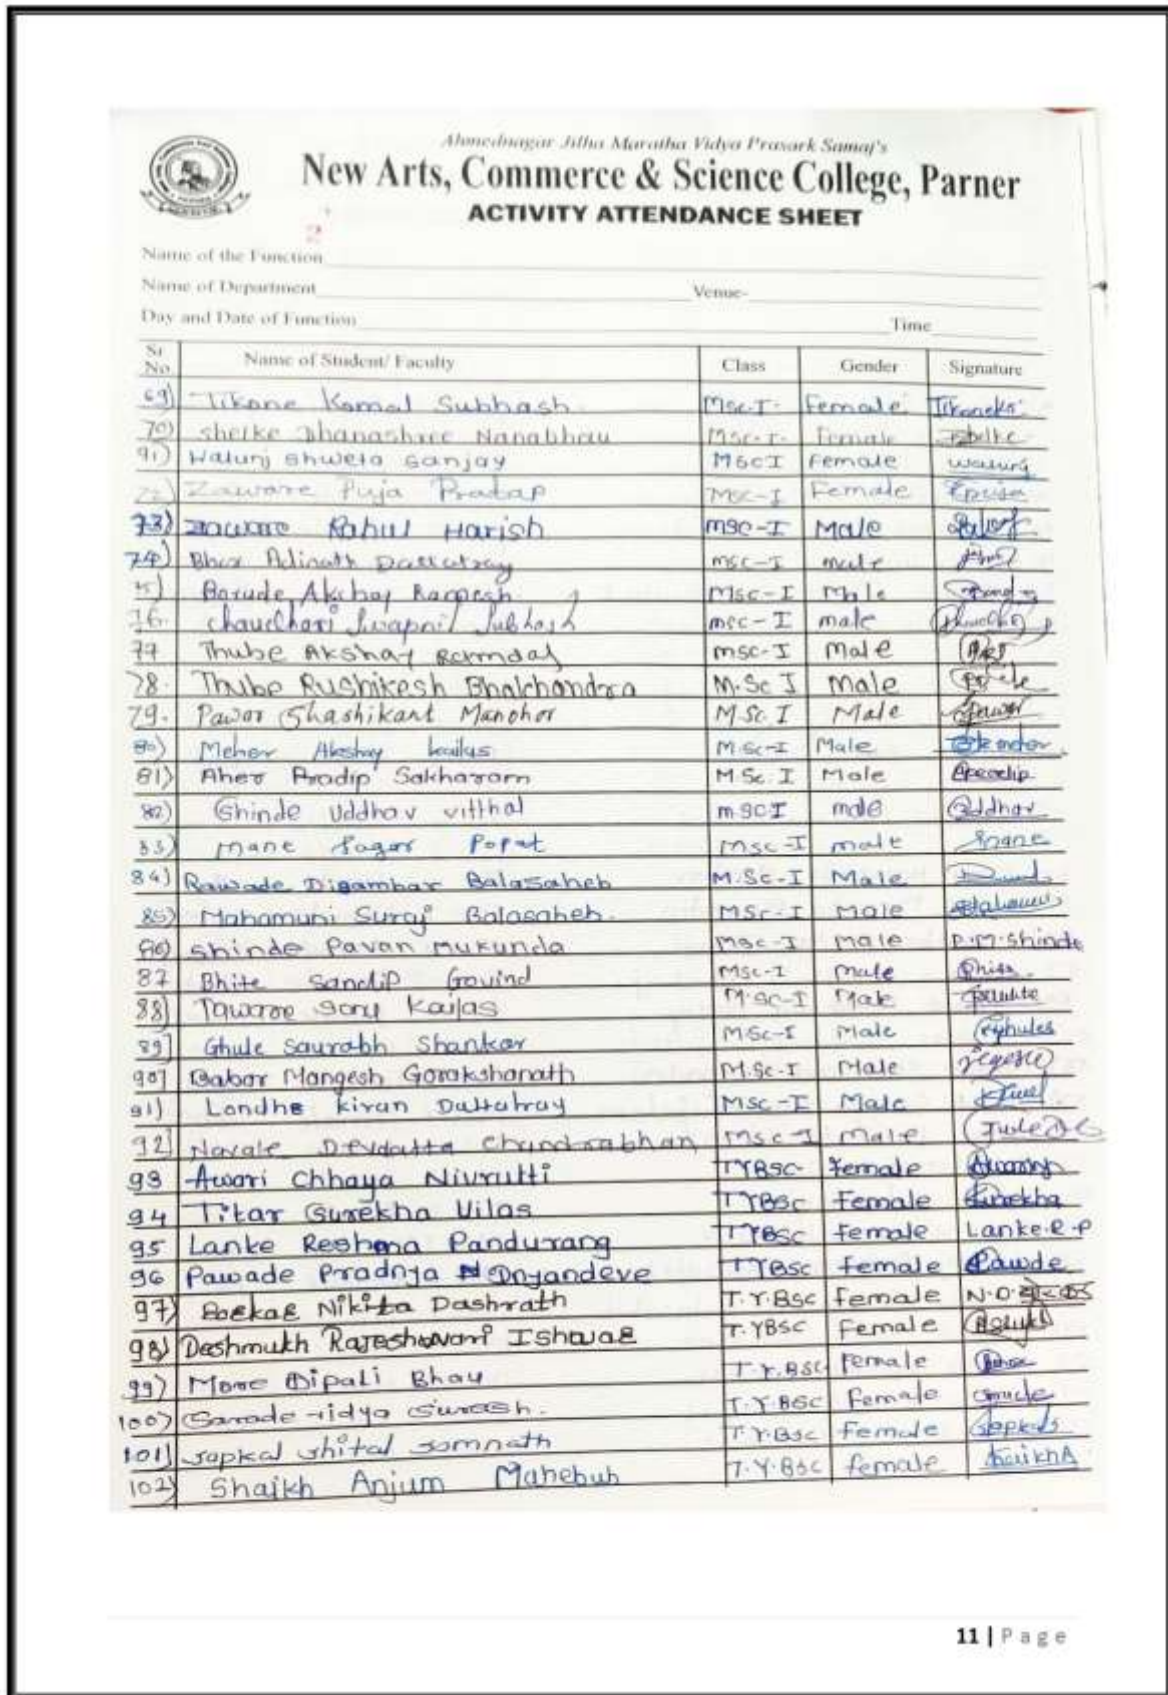 Ahmednagar Jilha Maratha Vidya Prasark Samaj's
New Arts, Commerce & Science College, Parner
ACTIVITY ATTENDANCE SHEET
2
Name of the Function
Name of Department Venue-
Day and Date of Function Time
Sr. No. Name of Student/ Faculty Class Gender Signature
69) Tikone Komal Subhash MSc-I- Female
70) Shelke Dhanashree Nanabhau MSc-I- Female
91) Walunj Shweta Sanjay MSc I Female
72) Zaware Puja Pratap MSc-I Female
73) Zaware Rahul Harish MSc-I Male
74) Bhor Adinath Dattatray MSc-I male
75) Barude Akshay MSc-I Male
76. Chaudhari Swapnil Subhash msc-I male
77 Thube Akshay Ramdas MSC-I Male
78. Thube Rushikesh Bhalchandra M.Sc I Male
79. Pawar Shashikant Manohar M.Sc. I Male
80) Meher Akshay kailas M.Sc-I Male
81) Aher Pradip Sakharam M.Sc. I Male
82) Shinde Uddhav vitthal m.SC I male Uddhav
83) mane Sagar Popat MSc-I male Smane
84) Rawade Digambar Balasaheb M.Sc-I Male
85) Mahamuni Suraj Balasaheb. MSc-I Male
86) Shinde Pavan Mukunda MSc-I male P.M.Shinde
87 Bhite Sandip Govind MSc-I male
88) Kailas M.SC-I Male
89] Ghule Saurabh Shankar MSc-I Male
90] Babar Mangesh Gorakshanath M.Sc-I Male
91) Londhe kiran Dattatray MSc-I Male
92] Navale Devdatta Chandrabhan MSc-I male
93 Awari Chhaya Nivrutti TYBSC- female
94 Titar Surekha Vilas TYBSC female Surekha
95 Lanke Reshma Pandurang TYBSC female Lanke.R.P
96 Pawade Pradnya Dnyandeve TYBSC female Pawde
97) Nikita Dashrath T.Y.BSC female
98) Deshmukh Rajeshwari Ishwar T.YBSC female
99) More Dipali Bhau T.Y.BSC female
100) Sarode Suresh. T.Y.BSC female
101) Sapkal Shital Somnath T.Y.BSC female
102) Shaikh Anjum Mahebub T.Y.BSC female ShaikhA
11 | Page